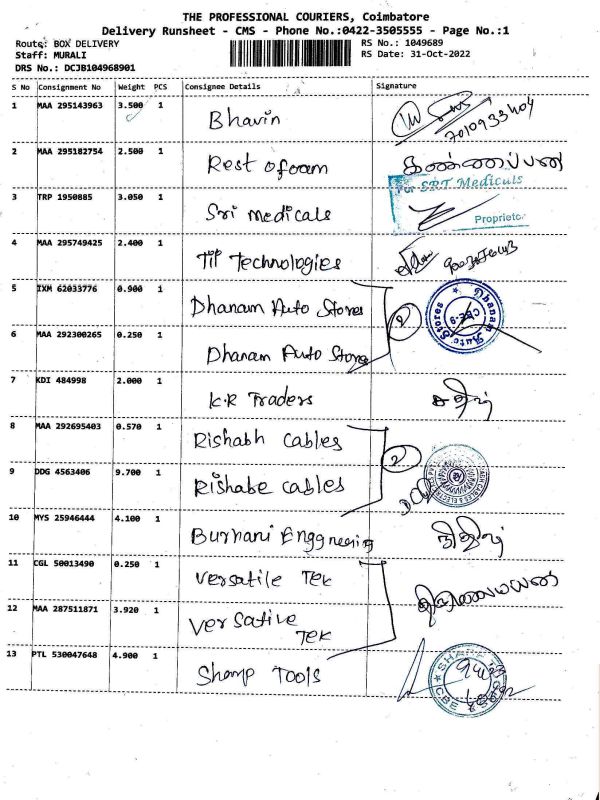 THE PROFESSIONAL COURIERS, Coimbatore
Delivery Runsheet - CMS - Phone No.:0422-3505555 - Page No.:1
Route: BOX DELIVERY
RS No.: 1049689
Staff: MURALI
RS Date: 31-Oct-2022
DRS No.: DCJB104968901
S No Consignment No Weight PCS Consignee Details Signature
1 MAA 295143963 3.500 1 Bhavin
2 MAA 295182754 2.500 1 Rest ofoam கண்ணப்பன்
For SRT Medicals
3 TRP 1950885 3.050 1 Sri Medicals
Proprietor
4 MAA 295749425 2.400 1 TIP Technologies
5 IXM 62033776 0.900 1 Dhanam Auto Stores 2 Dhanam Auto Stores CBE-9
6 MAA 292300265 0.250 1 Dhanam Auto Stores
7 KDI 484998 2.000 1 K.R Traders
8 MAA 292695403 0.570 1 Rishabh Cables 2
9 DDG 4563406 9.700 1 Rishabe Cables
10 MYS 25946444 4.100 1 Burhani Enggneering
11 CGL 50013490 0.250 1 Versatile Tek
12 MAA 287511871 3.920 1 Versative
Tek
13 PTL 530047648 4.900 1 Shamp Tools CBE